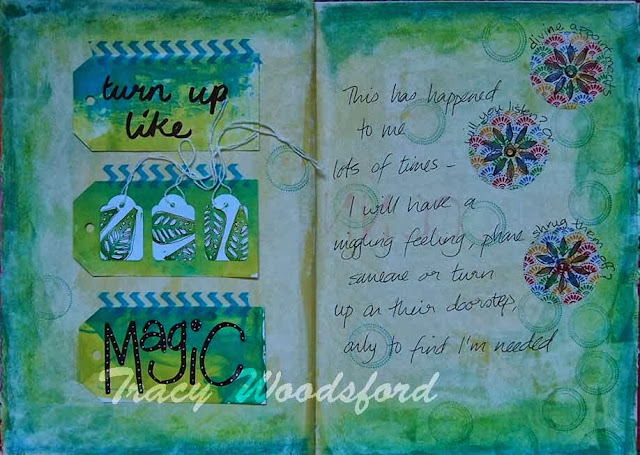 turn up
like
Magic
This has happened
to me
lots of times –
I will have a
niggling feeling, phone
someone or turn
up on their doorstep,
only to find I'm needed
divine appointments
will you listen? or
shrug them off?
Tracy Woodsford